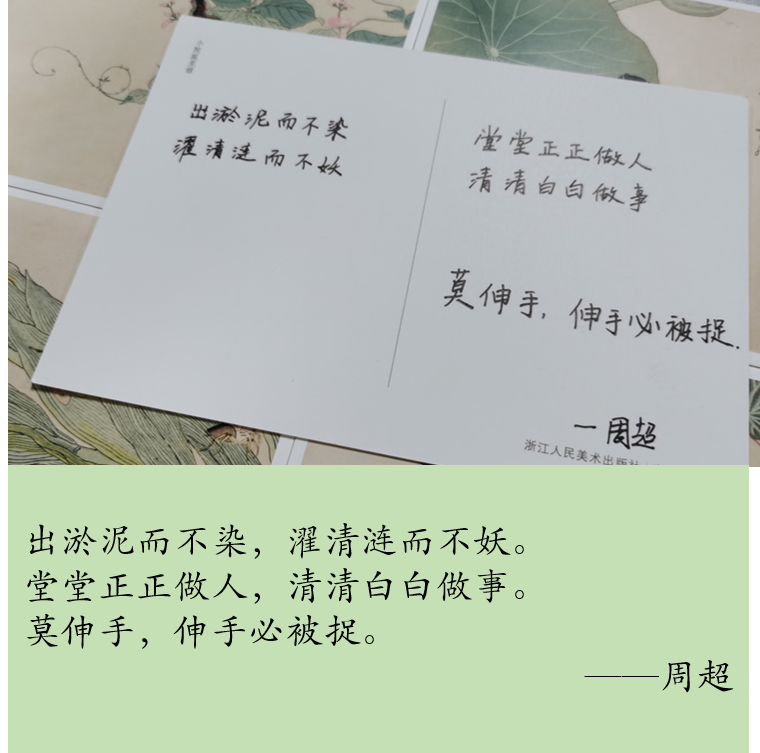 出淤泥而不染
濯清涟而不妖
堂堂正正做人
清清白白做事
莫伸手，伸手必被捉.
一周超
浙江人民美术出版社
出淤泥而不染，濯清涟而不妖。
堂堂正正做人，清清白白做事。
莫伸手，伸手必被捉。
——周超